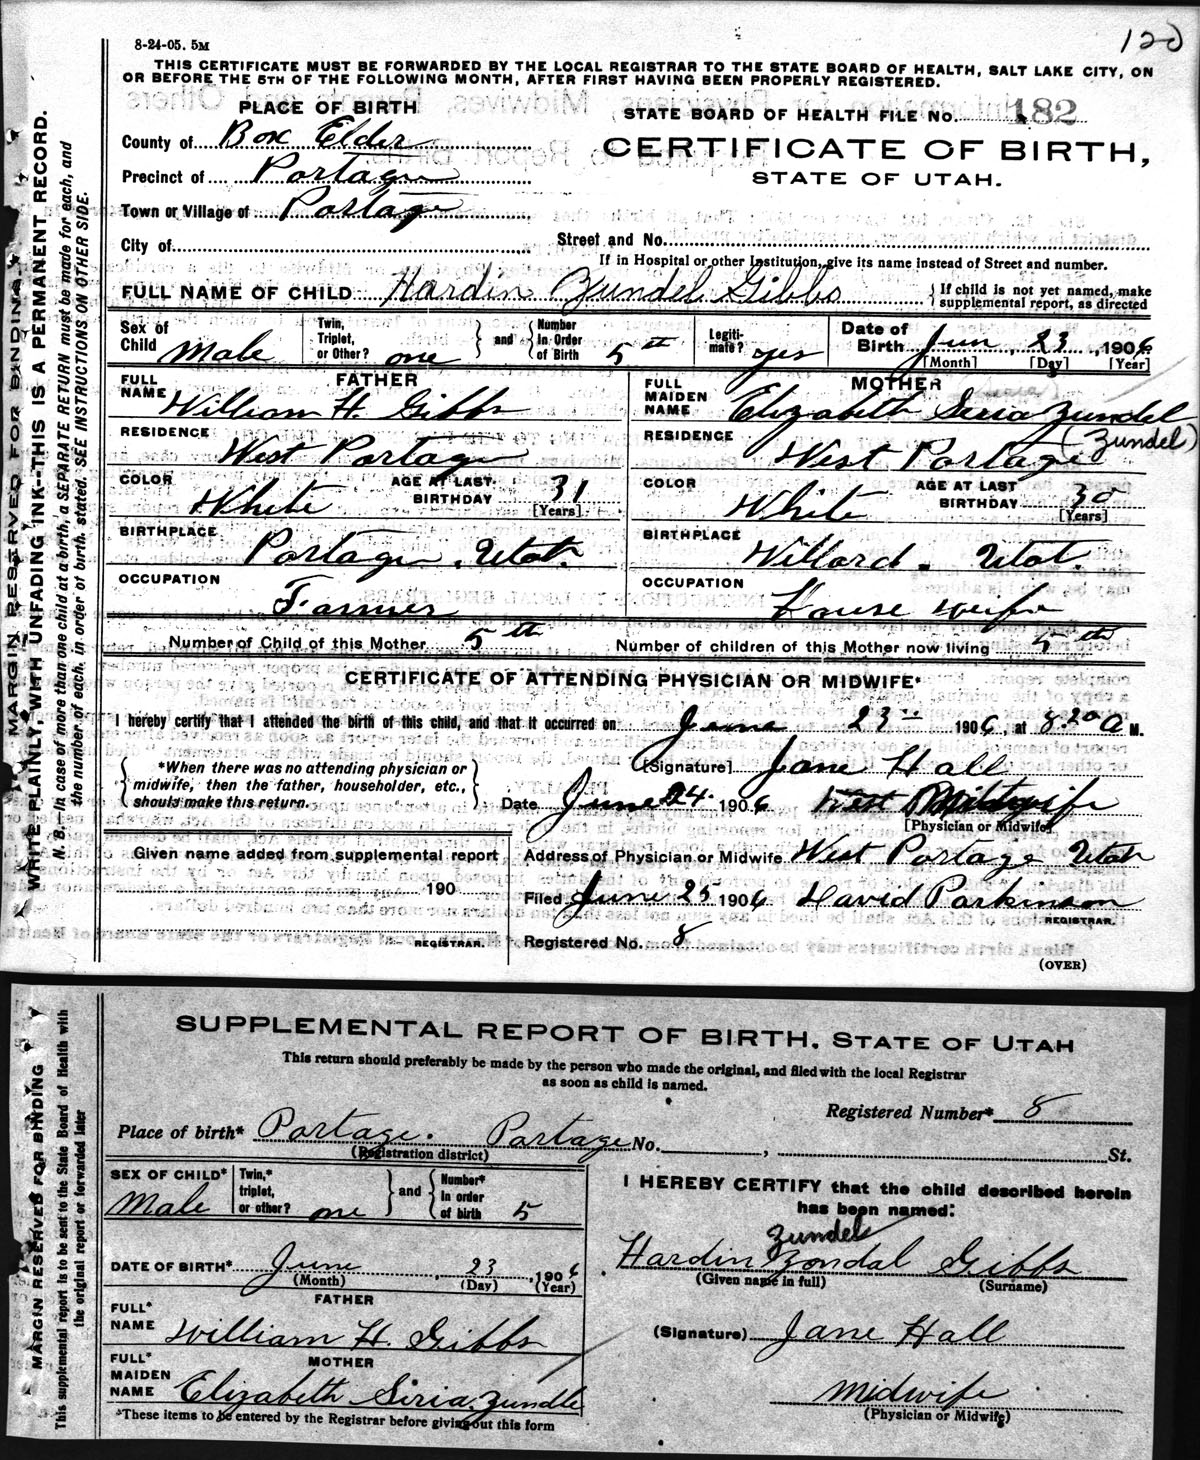 120
8-24-05. 5M
THIS CERTIFICATE MUST BE FORWARDED BY THE LOCAL REGISTRAR TO THE STATE BOARD OF HEALTH, SALT LAKE CITY, ON
OR BEFORE THE 5TH OF THE FOLLOWING MONTH, AFTER FIRST HAVING BEEN PROPERLY REGISTERED.
PLACE OF BIRTH
STATE BOARD OF HEALTH FILE No. 182
County of Box Elder
CERTIFICATE OF BIRTH,
Precinct of Portage
STATE OF UTAH.
Town or Village of Portage
City of
Street and No.
If in Hospital or other Institution, give its name instead of Street and number.
FULL NAME OF CHILD Hardin Zundel Gibbs
If child is not yet named, make
supplemental report, as directed
Sex of Child Male
Twin, Triplet, or Other? one
and
Number in Order of Birth 5th
Legitimate? yes
Date of Birth Jun 23, 1906
[Month] [Day] [Year]
FATHER
FULL NAME William H. Gibbs
RESIDENCE West Portage
COLOR White
AGE AT LAST BIRTHDAY 31 [Years]
BIRTHPLACE Portage, Utah.
OCCUPATION Farmer
MOTHER
FULL MAIDEN NAME Elizabeth Siria Zundel
(Zundel)
RESIDENCE West Portage
COLOR White
AGE AT LAST BIRTHDAY 30 [Years]
BIRTHPLACE Willard. Utah.
OCCUPATION House wife
Number of Child of this Mother 5th
Number of children of this Mother now living 5th
CERTIFICATE OF ATTENDING PHYSICIAN OR MIDWIFE*
I hereby certify that I attended the birth of this child, and that it occurred on June 23" 1906, at 8.20 A M.
*When there was no attending physician or
midwife, then the father, householder, etc.,
should make this return.
[Signature] Jane Hall
Date June 24. 1906 Midwife
[Physician or Midwife]
Given name added from supplemental report
190
REGISTRAR.
Address of Physician or Midwife West Portage Utah
Filed June 25 1906 David Parkinson
REGISTRAR.
Registered No. 8
(OVER)
MARGIN RESERVED FOR BINDING
WRITE PLAINLY WITH UNFADING INK--THIS IS A PERMANENT RECORD.
N. B.—In case of more than one child at a birth, a SEPARATE RETURN must be made for each, and
the number of each, in order of birth, stated. SEE INSTRUCTIONS ON OTHER SIDE.
SUPPLEMENTAL REPORT OF BIRTH, STATE OF UTAH
This return should preferably be made by the person who made the original, and filed with the local Registrar
as soon as child is named.
Registered Number* 8
Place of birth* Portage. Portage No. , St.
(Registration district)
SEX OF CHILD* Male
Twin,* triplet, or other? one
and
Number* in order of birth 5
DATE OF BIRTH* June 23, 1906
(Month) (Day) (Year)
FATHER
FULL* NAME William H. Gibbs
MOTHER
FULL* MAIDEN NAME Elizabeth Siria Zundle
*These items to be entered by the Registrar before giving out this form
I HEREBY CERTIFY that the child described herein
has been named:
Zundel
Hardin Zondal Gibbs
(Given name in full) (Surname)
(Signature) Jane Hall
Midwife
(Physician or Midwife)
MARGIN RESERVED FOR BINDING
This supplemental report is to be sent to the State Board of Health with
the original report or forwarded later